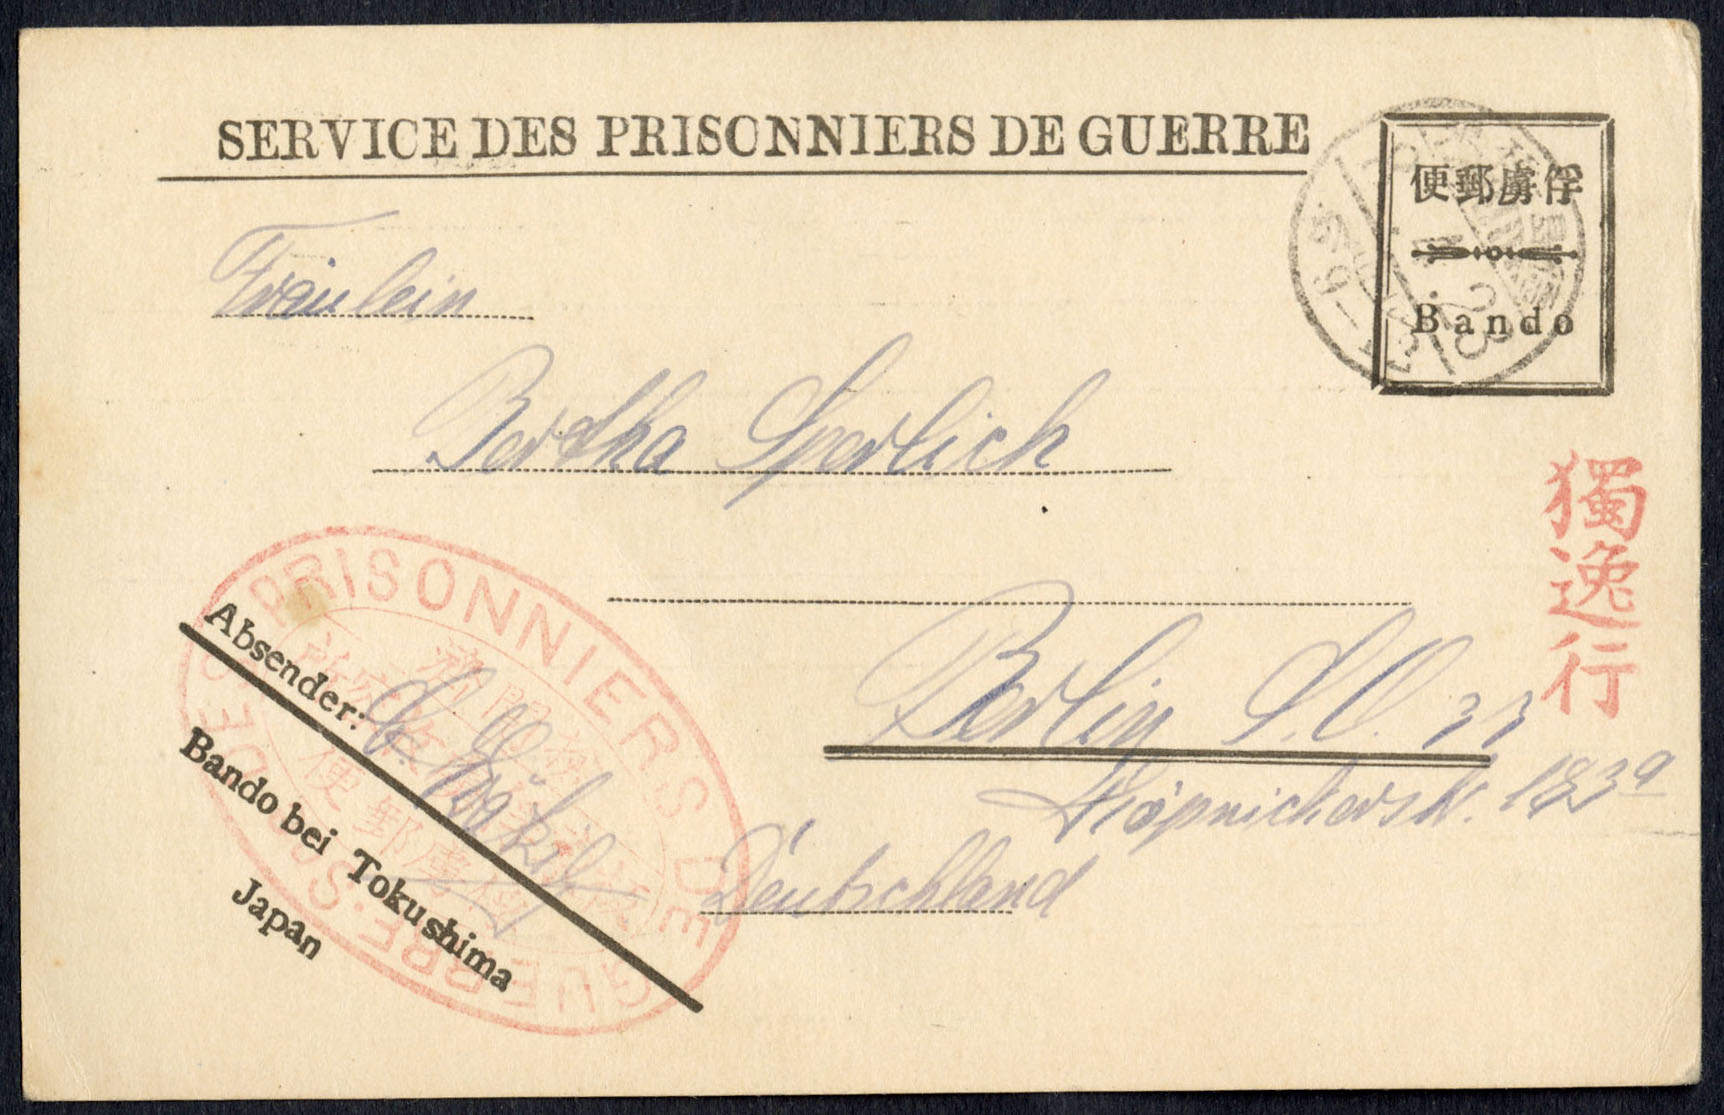 SERVICE DES PRISONNIERS DE GUERRE
便郵虜俘
Bando
Fräulein
Bertha Sperlich
獨逸行
Berlin S.O. 33
Köpnickerstr. 183a
Deutschland
PRISONNIERS DE GUERRE
Absender:
Bando bei Tokushima
Japan
便郵虜俘